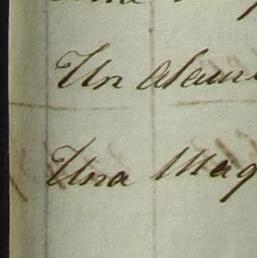 Un Alam
Una Maq